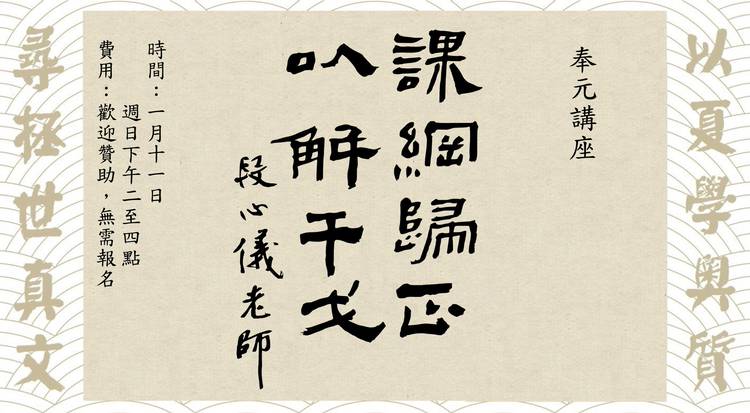 以夏學奧質
奉元講座
課綱歸正
以解干戈
段心儀老師
時間：一月十一日
週日下午二至四點
費用：歡迎贊助，無需報名
尋拯世真文